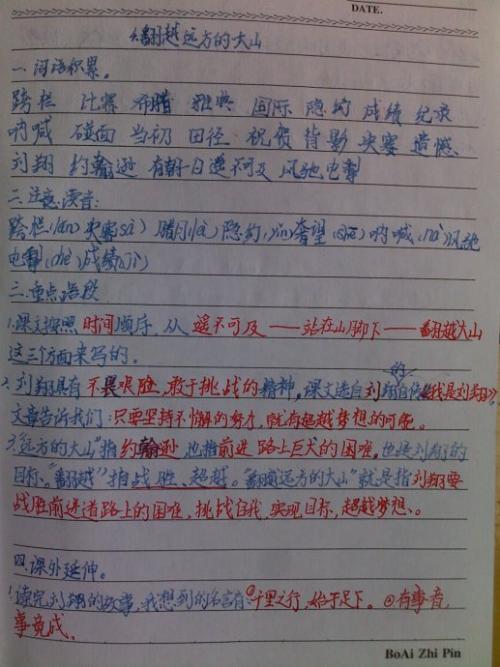 DATE.
4翻越远方的大山
一.词语积累。
跨栏 比赛 希腊 雅典 国际 隐约 成绩 纪录
呐喊 碰面 当初 田径 祝贺 背影 决赛 遗憾
刘翔 约翰逊 有朝一日 遥不可及 风驰电掣
二.注意读音:
跨栏(lán) 决赛(sài) 腊月(là) 隐约(yǐn) 奢望(shē) 呐喊(nà) 风驰
电掣(chè) 成绩(jì)
三.重点语段
1.课文按照时间顺序,从遥不可及——站在山脚下——翻越大山
这三个方面来写的。
2.刘翔具有不畏艰险,敢于挑战的精神。课文选自刘翔的自传《我是刘翔》。
文章告诉我们:只要坚持不懈的努力,就有超越梦想的可能。
3."远方的大山"指约翰逊,也指前进路上巨大的困难,也是刘翔的
目标。"翻越"指战胜、超越。"翻越远方的大山"就是指刘翔要
战胜前进道路上的困难,挑战自我,实现目标,超越梦想。
四.课外延伸。
1.读完刘翔的故事,我想到的名言有:①千里之行,始于足下。②有志者,
事竟成。
BoAi Zhi Pin